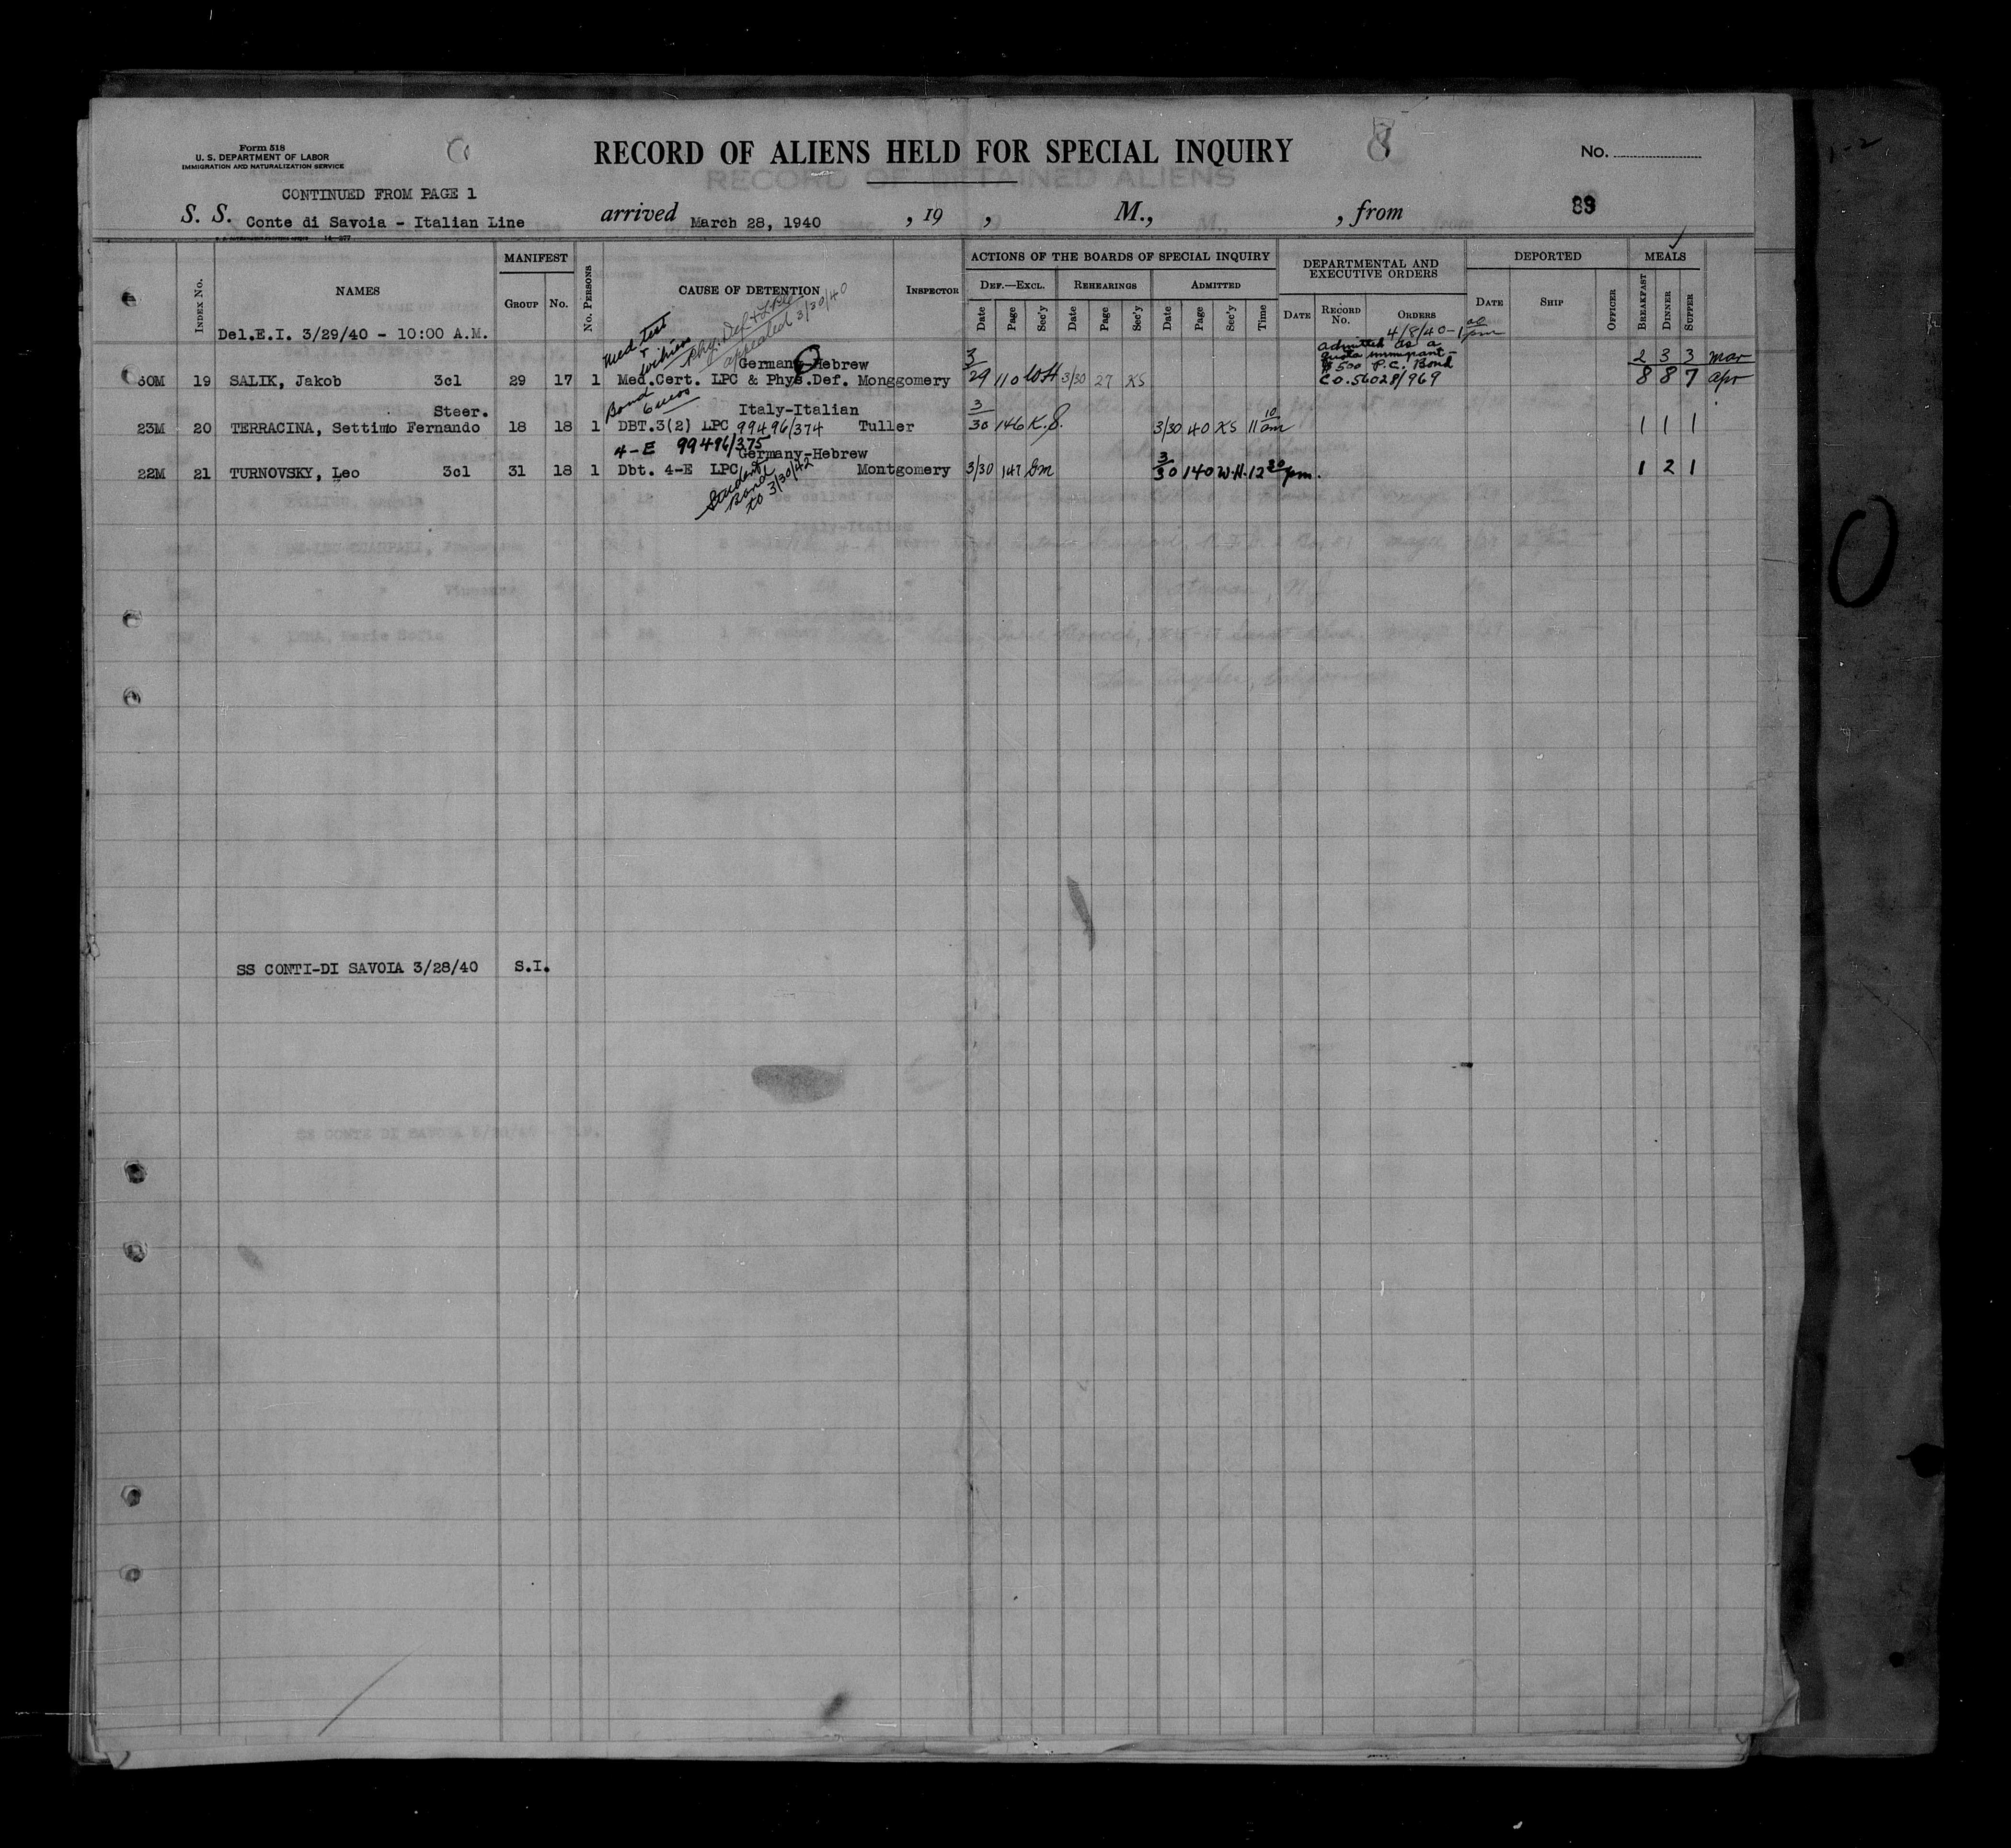 Form 518
U. S. DEPARTMENT OF LABOR
IMMIGRATION AND NATURALIZATION SERVICE
RECORD OF ALIENS HELD FOR SPECIAL INQUIRY
8
No.
CONTINUED FROM PAGE 1
S. S. Conte di Savoia - Italian Line arrived March 28, 1940 , 19 , M., , from
89
INDEX No. NAMES MANIFEST GROUP No. No. PERSONS CAUSE OF DETENTION INSPECTOR ACTIONS OF THE BOARDS OF SPECIAL INQUIRY DEPARTMENTAL AND EXECUTIVE ORDERS DEPORTED MEALS
DEF.—EXCL. REHEARINGS ADMITTED
Date Page Sec'y Date Page Sec'y Date Page Sec'y Time DATE RECORD No. ORDERS DATE SHIP OFFICER BREAKFAST DINNER SUPPER
Del.E.I. 3/29/40 - 10:00 A.M.
Med test
Phy. Def. & LPC
appealed 3/30/40
4/8/40-1 00 pm
admitted as a
quota immigrant-
$500 P.C. Bond
CO.56028/969
Germany-Hebrew
2 3 3 Mar
60M 19 SALIK, Jakob 3cl 29 17 1 Med.Cert. LPC & Phys.Def. Monggomery 3/29 110 WH 3/30 27 KS 8 8 7 Apr
Bond
6 mos
Steer. Italy-Italian
23M 20 TERRACINA, Settimo Fernando 18 18 1 DBT.3(2) LPC 99496/374 Tuller 3/30 146 K.S. 3/30 40 KS 11 10 am 1 1 1
4-E 99496/375
Germany-Hebrew
22M 21 TURNOVSKY, Leo 3cl 31 18 1 Dbt. 4-E LPC Montgomery 3/30 147 DM 3/30 140 W.H. 12 30 pm. 1 2 1
Student
Bond
to 3/30/42
SS CONTI-DI SAVOIA 3/28/40 S.I.